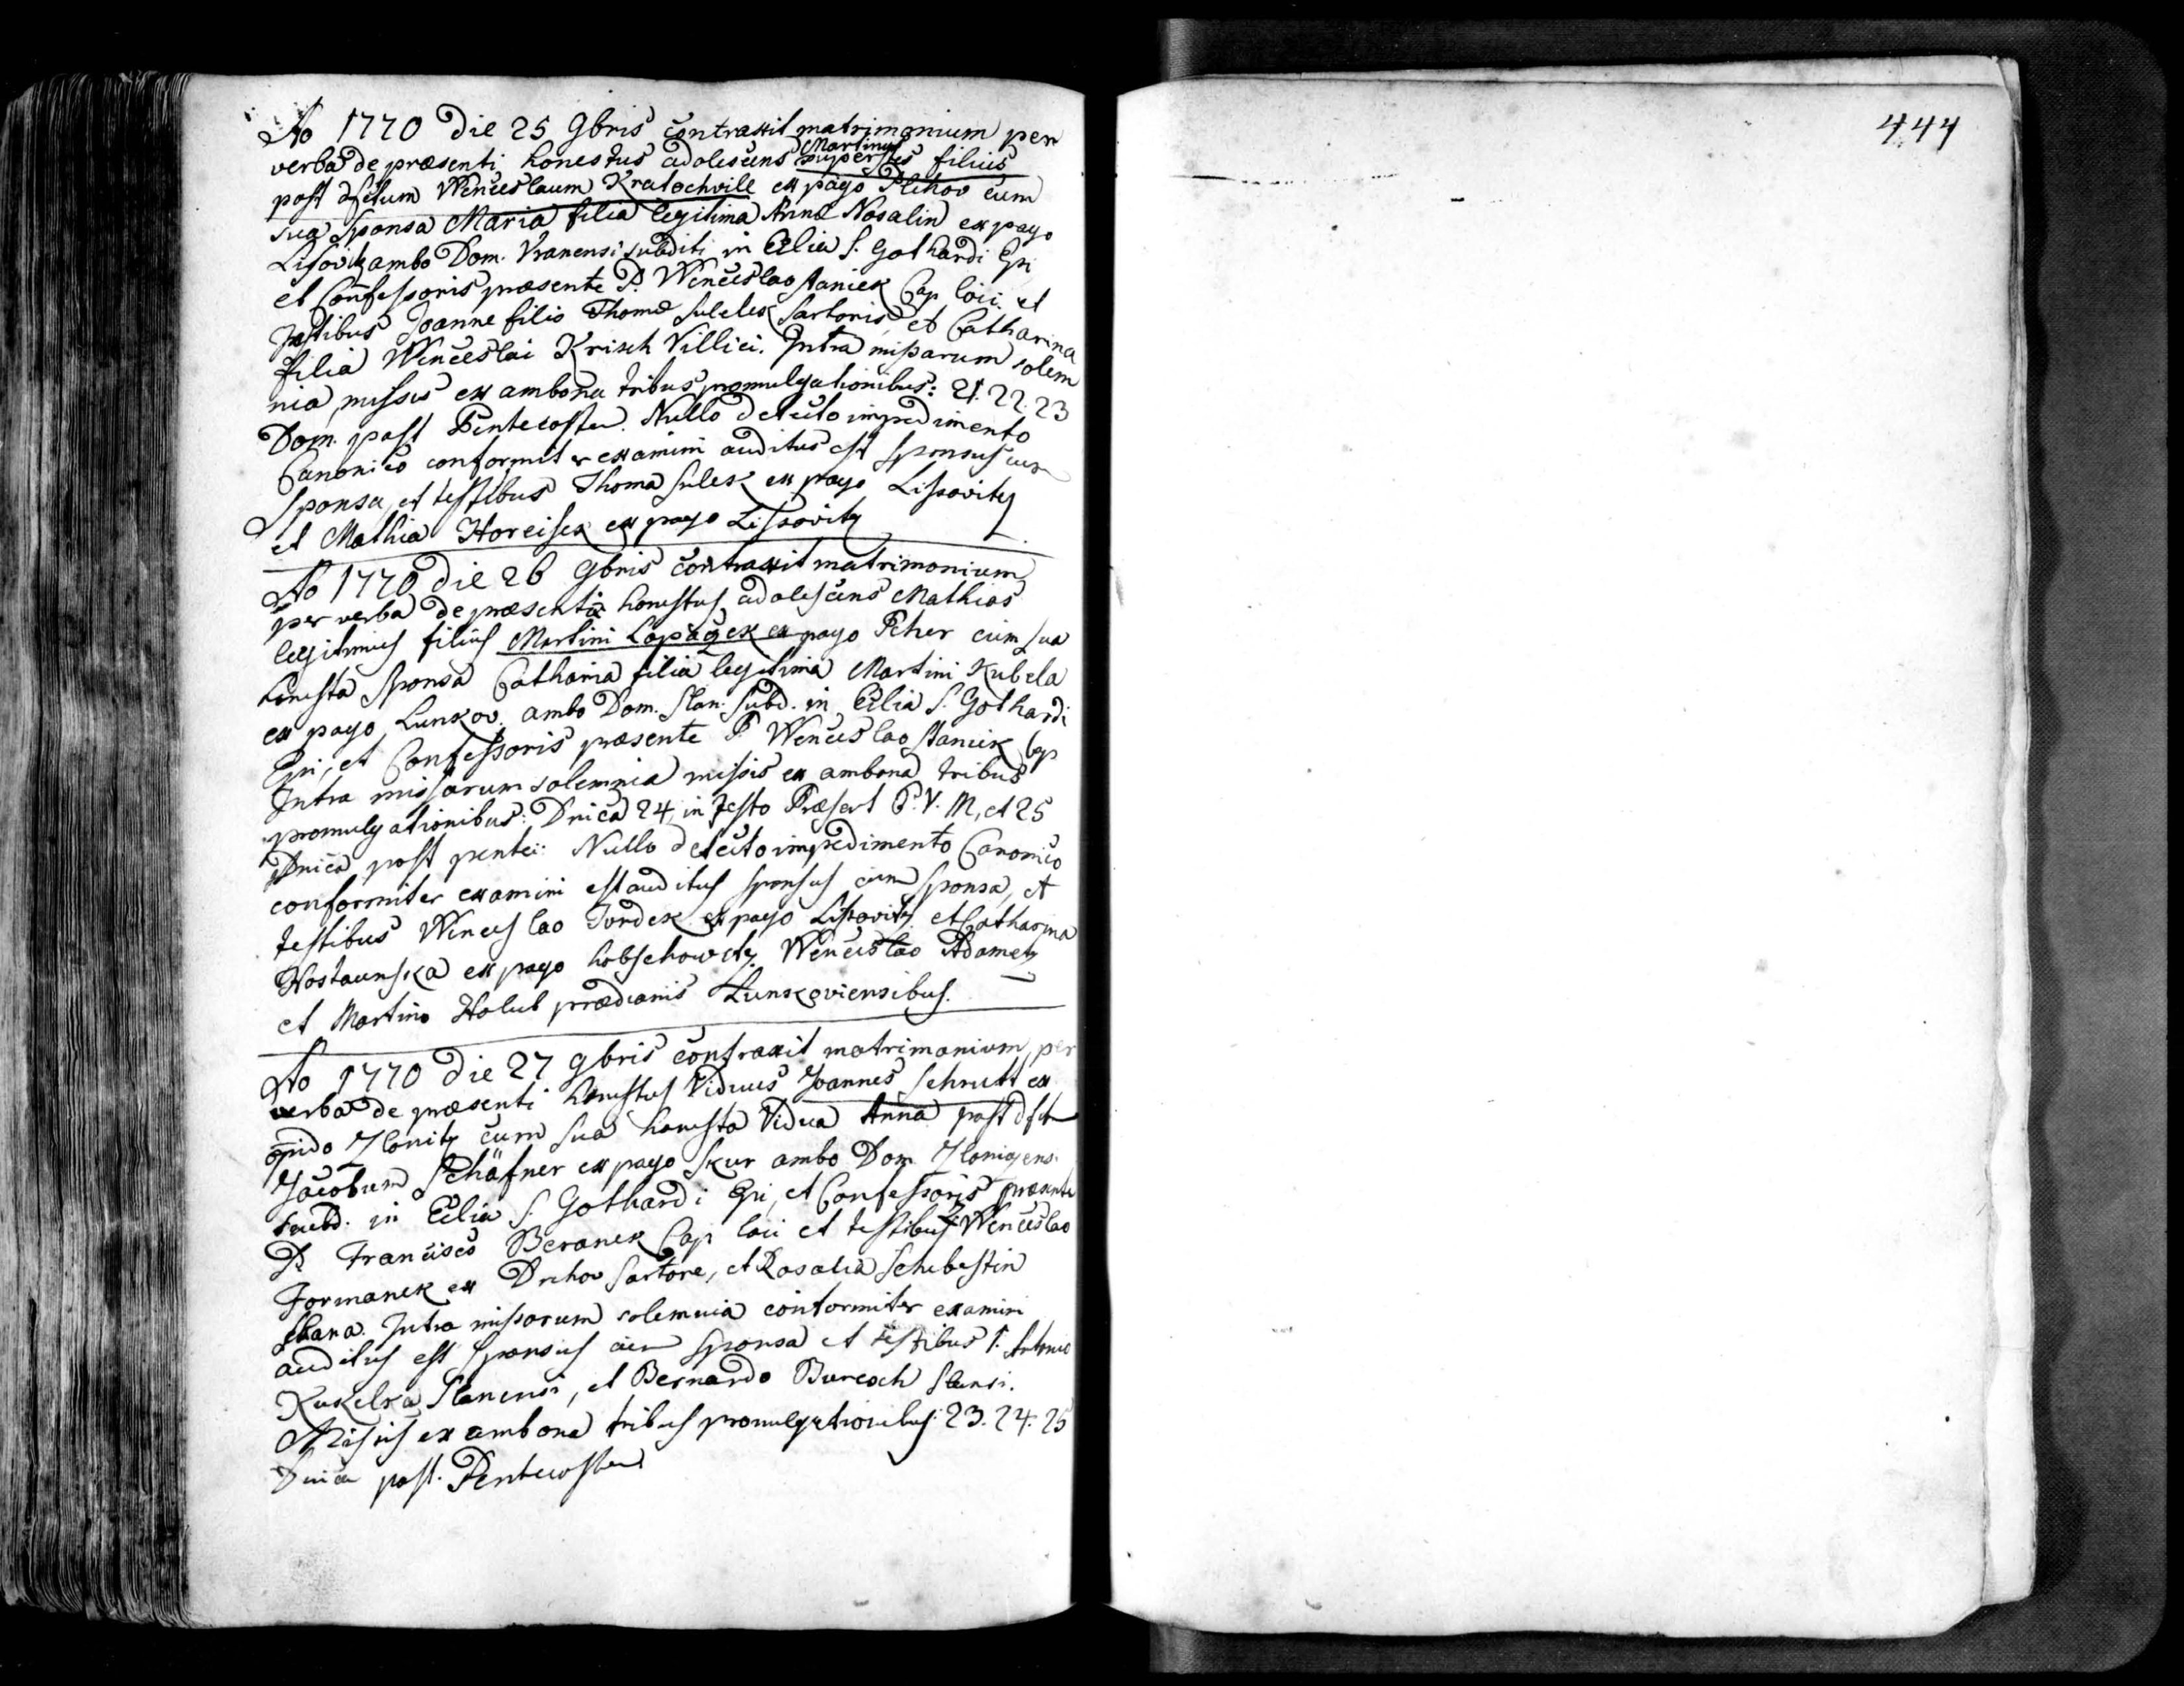 Ao 1770 die 25 9bris contraxit matrimonium per
verba de præsenti honestus adolescens Martinus superstes filius
post dfctum Wenceslaum Kratochvile ex pago Plchov cum
sua sponsa Maria filia legitima Annæ Nosalin ex pago
Lisovitz ambo Dom. Vranensi subditi in Eclia S. Gothardi Epi
et Confessoris præsente P. Wenceslao Staniek Cap loci et
testibus Joanne filio Thomæ Sulek Sartoris et Catharina
filia Wenceslai Krisch Villici. Intra missarum solem
nia missis ex ambona tribus promulgationibus: 21. 22. 23
Dom. post Pentecosten. Nullo detecto impedimento
Canonico conformiter examini auditus est sponsus cum
sponsa, et testibus Thoma Sulek ex pago Lissovitz
et Mathia Horeisek ex pago Lissovitz
Ao 1770 die 26 9bris contraxit matrimonium
per verba de præsenti honestus adolescens Mathias
legitimus filius Martini Lopaček ex pago Pcher cum sua
honesta sponsa Catharia filia legitima Martini Kubela
ex pago Lunkov. ambo Dom. Slan. Subd. in Eclia S. Gothardi
Epi, et Confessoris præsente P. Wenceslao Staniek Cap
Intra missarum solemnia missis ex ambona tribus
promulgationibus: Dnica 24, in festo Præsent B. V. M, et 25
Dnica post pentec: Nullo detecto impedimento Canonico
conformiter examini est auditus sponsus cum sponsa, et
testibus Wenceslao Tordek ex pago Lissovitz et Catharina
Hostaunska ex pago hobschowitz. Wenceslao Adametz
et Martino Holub prædianis Lunkoviensibus.
Ao 1770 die 27 9bris contraxit matrimonium per
verba de præsenti honestus Viduus Joannes Schrutt ex
opido Zlonitz cum sua honesta Vidua Anna post dfct
Jacobum Schäfner ex pago Skur ambo Dom Zlonicens.
subd. in Eclia S. Gothardi Epi, et Confessoris præsente
P. Francisco Beranek Cap loci et testibus Wenceslao
Formanek ex Drchov Sartore, et Rosalia Schebestin
Slana. Intra missarum solemnia conformiter examini
auditus est sponsus cum sponsa et testibus Antonio
Kukelka Slanensi, et Bernardo Buresch Slansi.
Missis ex ambona tribus promulgationibus: 23. 24. 25
Dnica post. Pentecosten
444